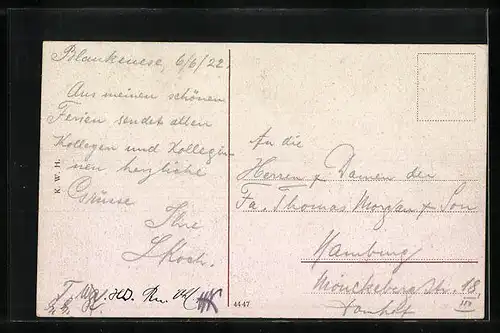 Blankenese, 6/6/22.
Aus meinen schönen
Ferien sendet allen
Kollegen und Kollegin-
nen herzliche
Grüsse
Ihre
L Koch.
K. W. H.
An die
Herren & Damen der
Fa. Thomas Morgan & Son
Hamburg
Mönckebergstr. 18.
III
4447